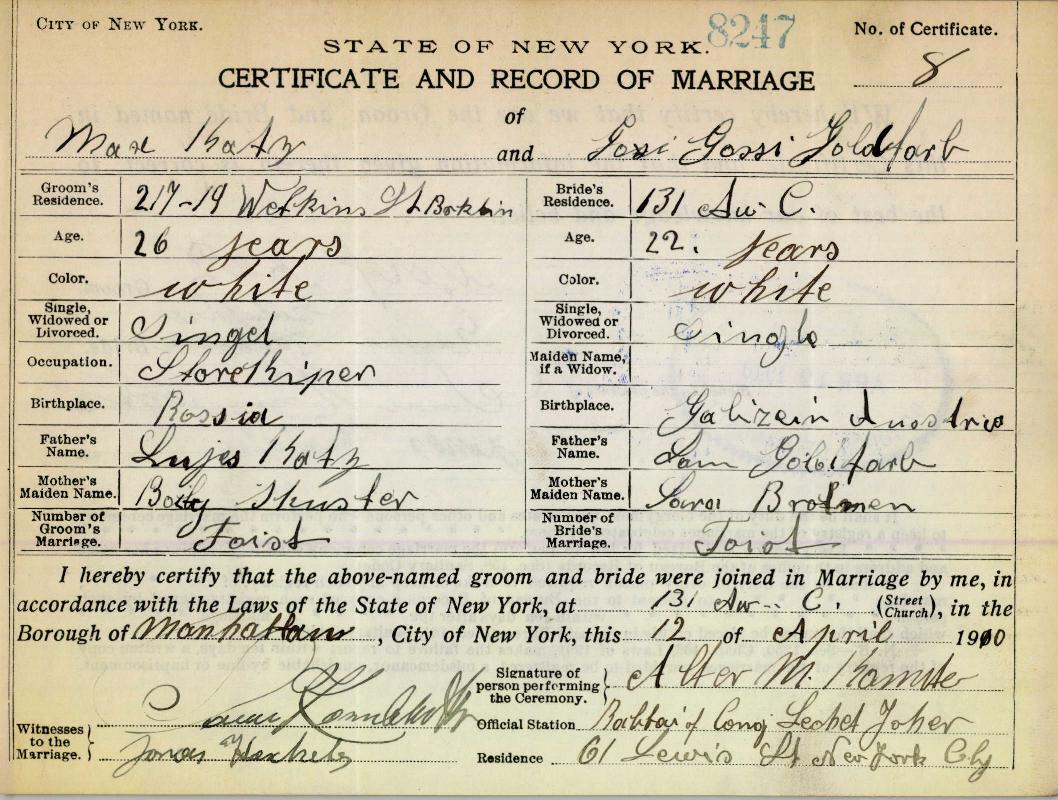 CITY OF NEW YORK.
8247
No. of Certificate.
STATE OF NEW YORK.
8
CERTIFICATE AND RECORD OF MARRIAGE
of
Max Katz and Gossi Goldfarb
Groom's Residence. 217-19 Watkins St Borklin Bride's Residence. 131 Aw. C.
Age. 26 years Age. 22. years
Color. white Color. white
Single, Widowed or Divorced. Singel Single, Widowed or Divorced. Single
Occupation. StoreKiper Maiden Name, if a Widow.
Birthplace. Rossia Birthplace. Galizein Austria
Father's Name. Katz Father's Name. Sam Goldfarb
Mother's Maiden Name. Shuster Mother's Maiden Name. Sara
Number of Groom's Marriage. Foist Number of Bride's Marriage. Foist
I hereby certify that the above-named groom and bride were joined in Marriage by me, in
accordance with the Laws of the State of New York, at 131 Aw. C. (Street Church), in the
Borough of Manhattan, City of New York, this 12 of April 1910
Signature of person performing the Ceremony. Alter M.
Witnesses to the Marriage.
Official Station
Jonas
Residence 61 Lewis St New York City